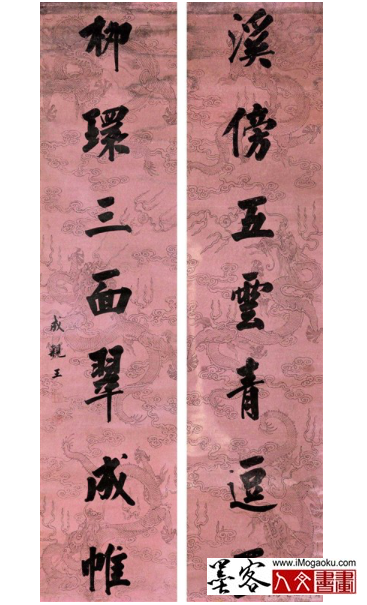 溪傍五雲青逗
柳環三面翠成帷
成親王
墨客
www.iMogaoku.com
人文書畫